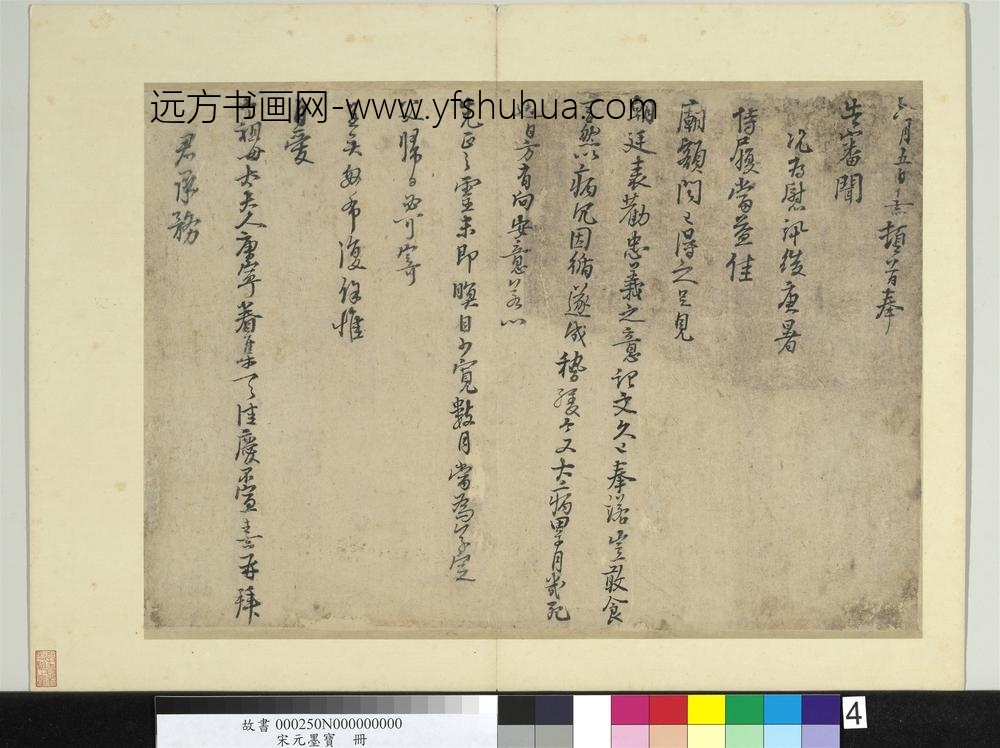 六月五日熹頓首奉
告審聞
況為慰訊後庚暑
侍履當益佳
廟額聞已得之足見
朝廷表勸忠義之意記文久已奉諾豈敢食
然以病冗因循遂成稽緩今又大病累月幾死
日方有向安意若以
先正之靈未即瞑目少寬數月當為草定
歸日可寄
矣布復餘惟
愛
祖母太夫人康寧眷集一一佳慶不宣熹再拜
君承務
远方书画网-www.yfshuhua.com
故書 000250N000000000
宋元墨寶 冊
4